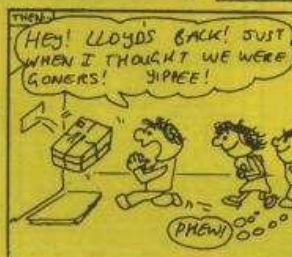 THEN..
HEY! LLOYD'S BACK! JUST
WHEN I THOUGHT WE WERE
GONERS! YIPPEE!
PHEW!